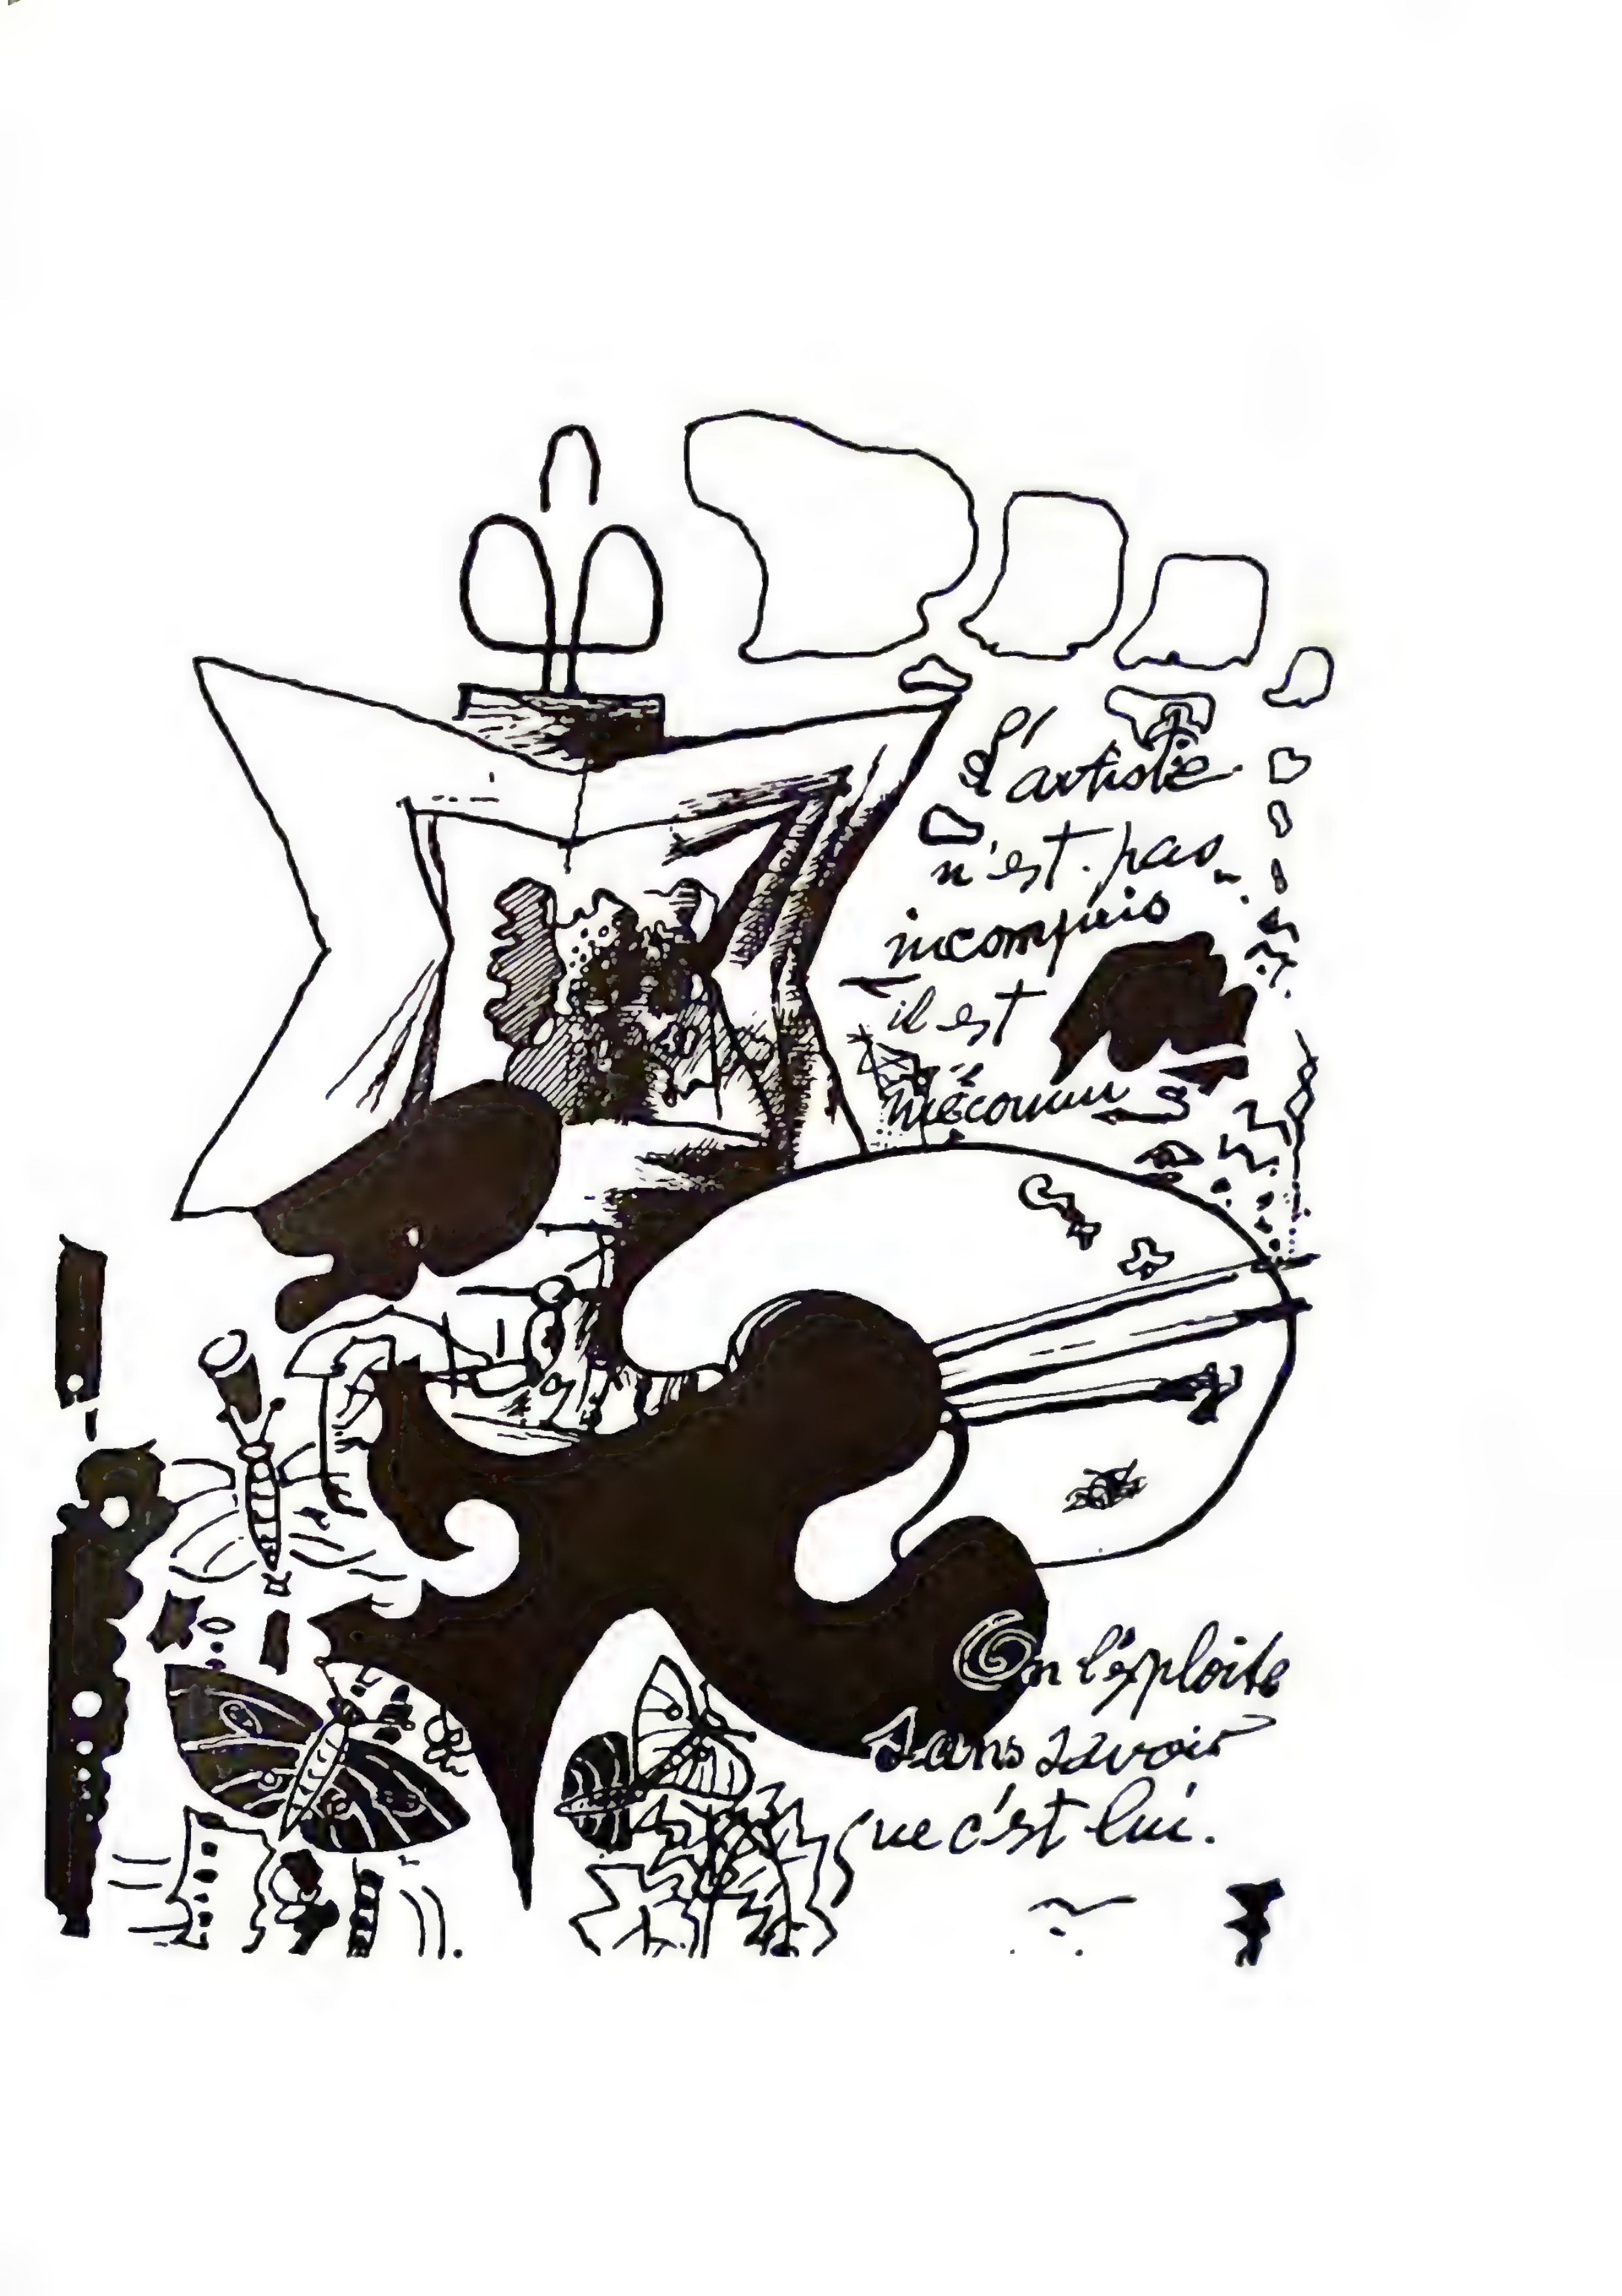 L'artiste
n'est pas
incompris
il est
méconnu
On l'exploite
sans savoir
que c'est lui.